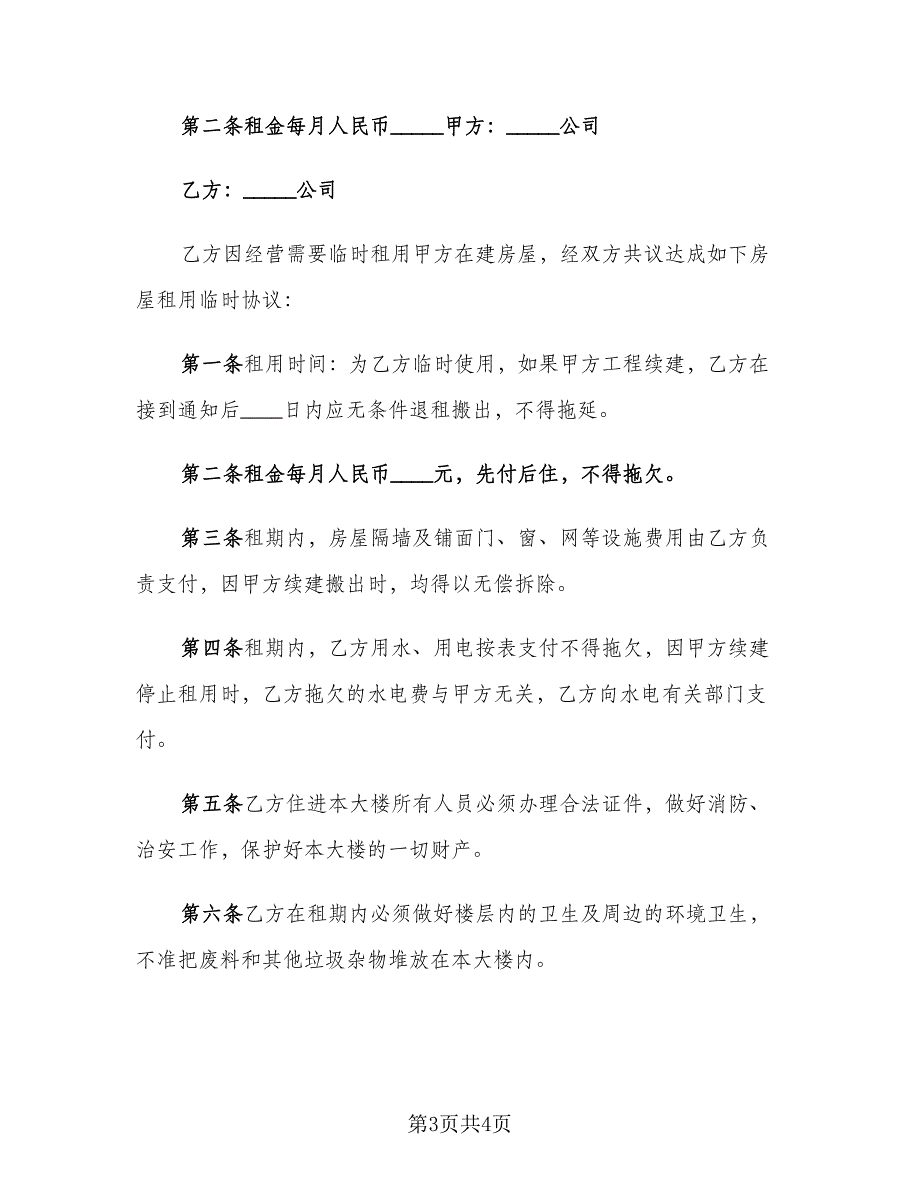 第二条租金每月人民币_____甲方：_____公司
乙方：_____公司
乙方因经营需要临时租用甲方在建房屋，经双方共议达成如下房
屋租用临时协议：
第一条租用时间：为乙方临时使用，如果甲方工程续建，乙方在
接到通知后____日内应无条件退租搬出，不得拖延。
第二条租金每月人民币____元，先付后住，不得拖欠。
第三条租期内，房屋隔墙及铺面门、窗、网等设施费用由乙方负
责支付，因甲方续建搬出时，均得以无偿拆除。
第四条租期内，乙方用水、用电按表支付不得拖欠，因甲方续建
停止租用时，乙方拖欠的水电费与甲方无关，乙方向水电有关部门支
付。
第五条乙方住进本大楼所有人员必须办理合法证件，做好消防、
治安工作，保护好本大楼的一切财产。
第六条乙方在租期内必须做好楼层内的卫生及周边的环境卫生，
不准把废料和其他垃圾杂物堆放在本大楼内。
第3页共4页